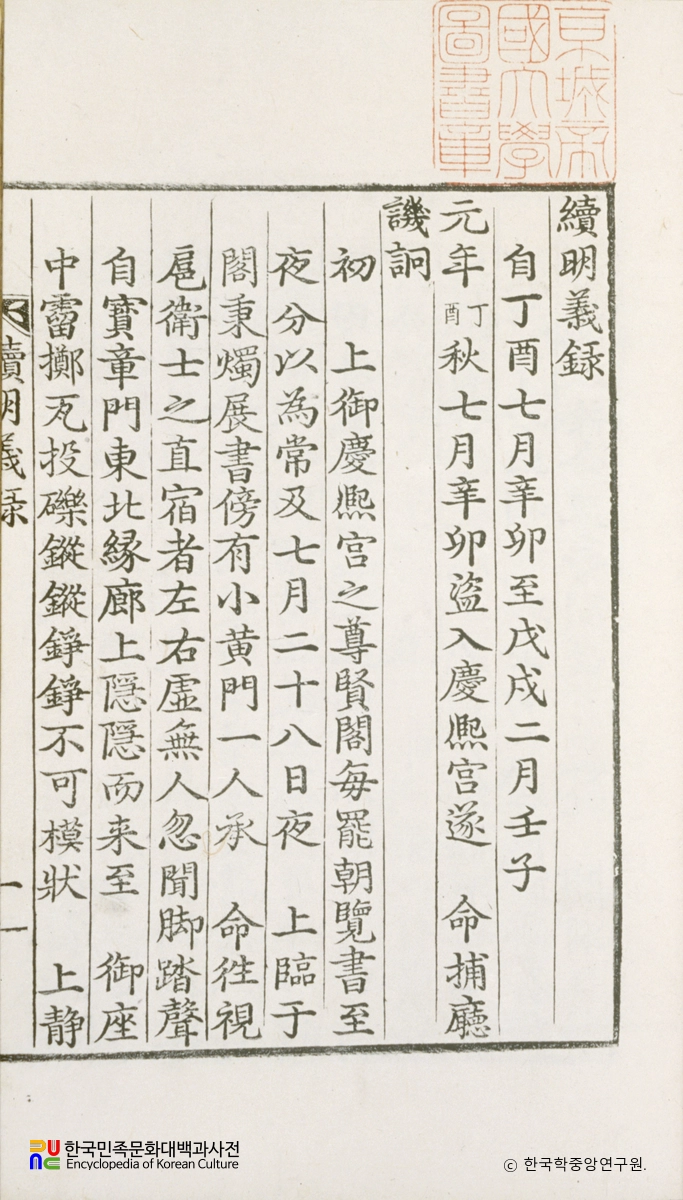 京城帝
國大學
圖書章
續明義録
自丁酉七月辛卯至戊戌二月壬子
元年丁酉秋七月辛卯盜入慶熙宮遂 命捕廳
譏詗
初 上御慶熙宮之尊賢閣每罷朝覽書至
夜分以為常及七月二十八日夜 上臨于
閣秉燭展書傍有小黃門一人承 命徃視
扈衛士之直宿者左右虛無人忽聞脚踏聲
自寳章門東北緣廊上隱隱而来至 御座
中霤擲瓦投礫鏦鏦錚錚不可模狀 上静
續明義録
一
한국민족문화대백과사전
Encyclopedia of Korean Culture
ⓒ 한국학중앙연구원.